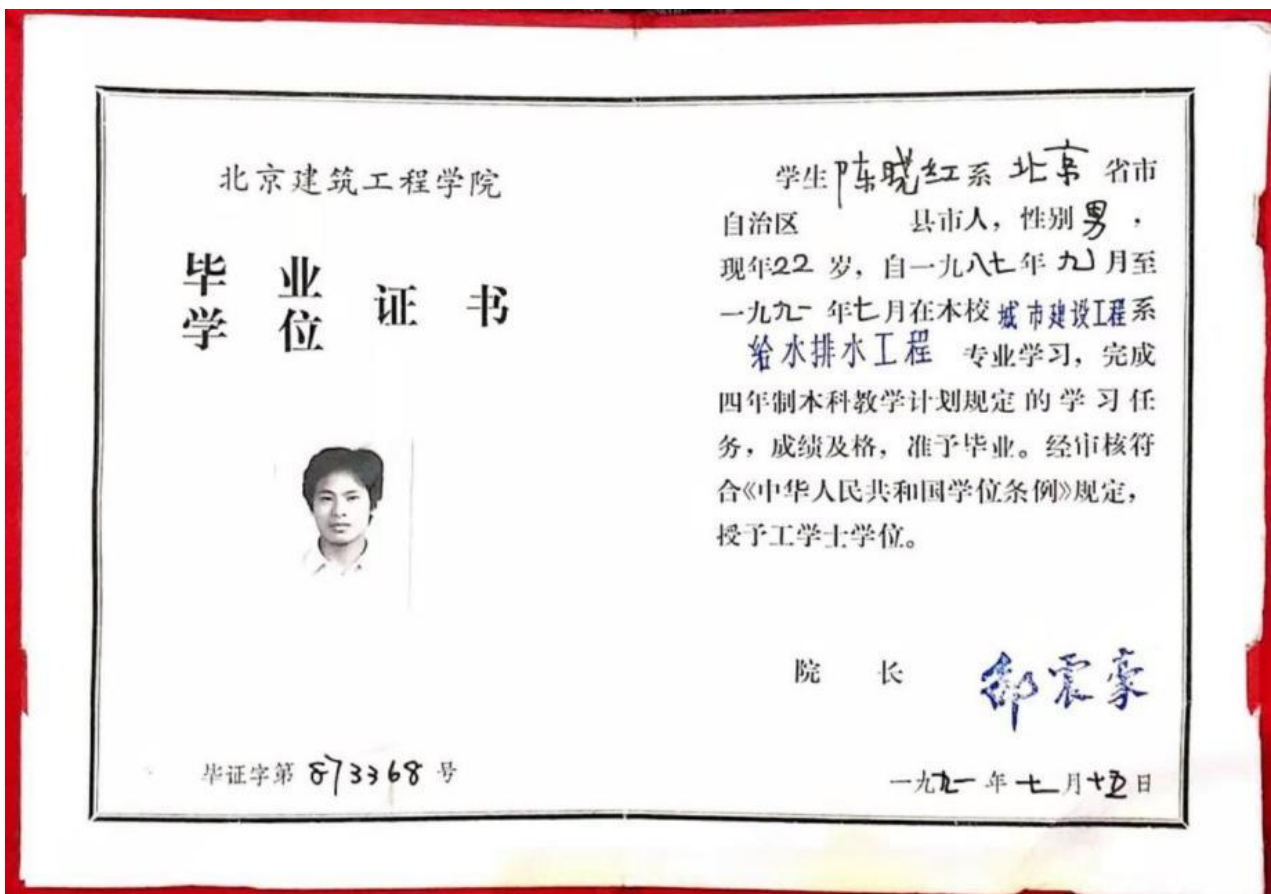 北京建筑工程学院
毕业
学位
证书
毕证字第 873368 号
学生陈晓红系 北京 省市
自治区 县市人，性别男，
现年22 岁，自一九八七年九月至
一九九一年七月在本校城市建设工程系
给水排水工程 专业学习，完成
四年制本科教学计划规定的学习任
务，成绩及格，准予毕业。经审核符
合《中华人民共和国学位条例》规定，
授予工学士学位。
院 长 郗震豪
一九九一年七月十五日